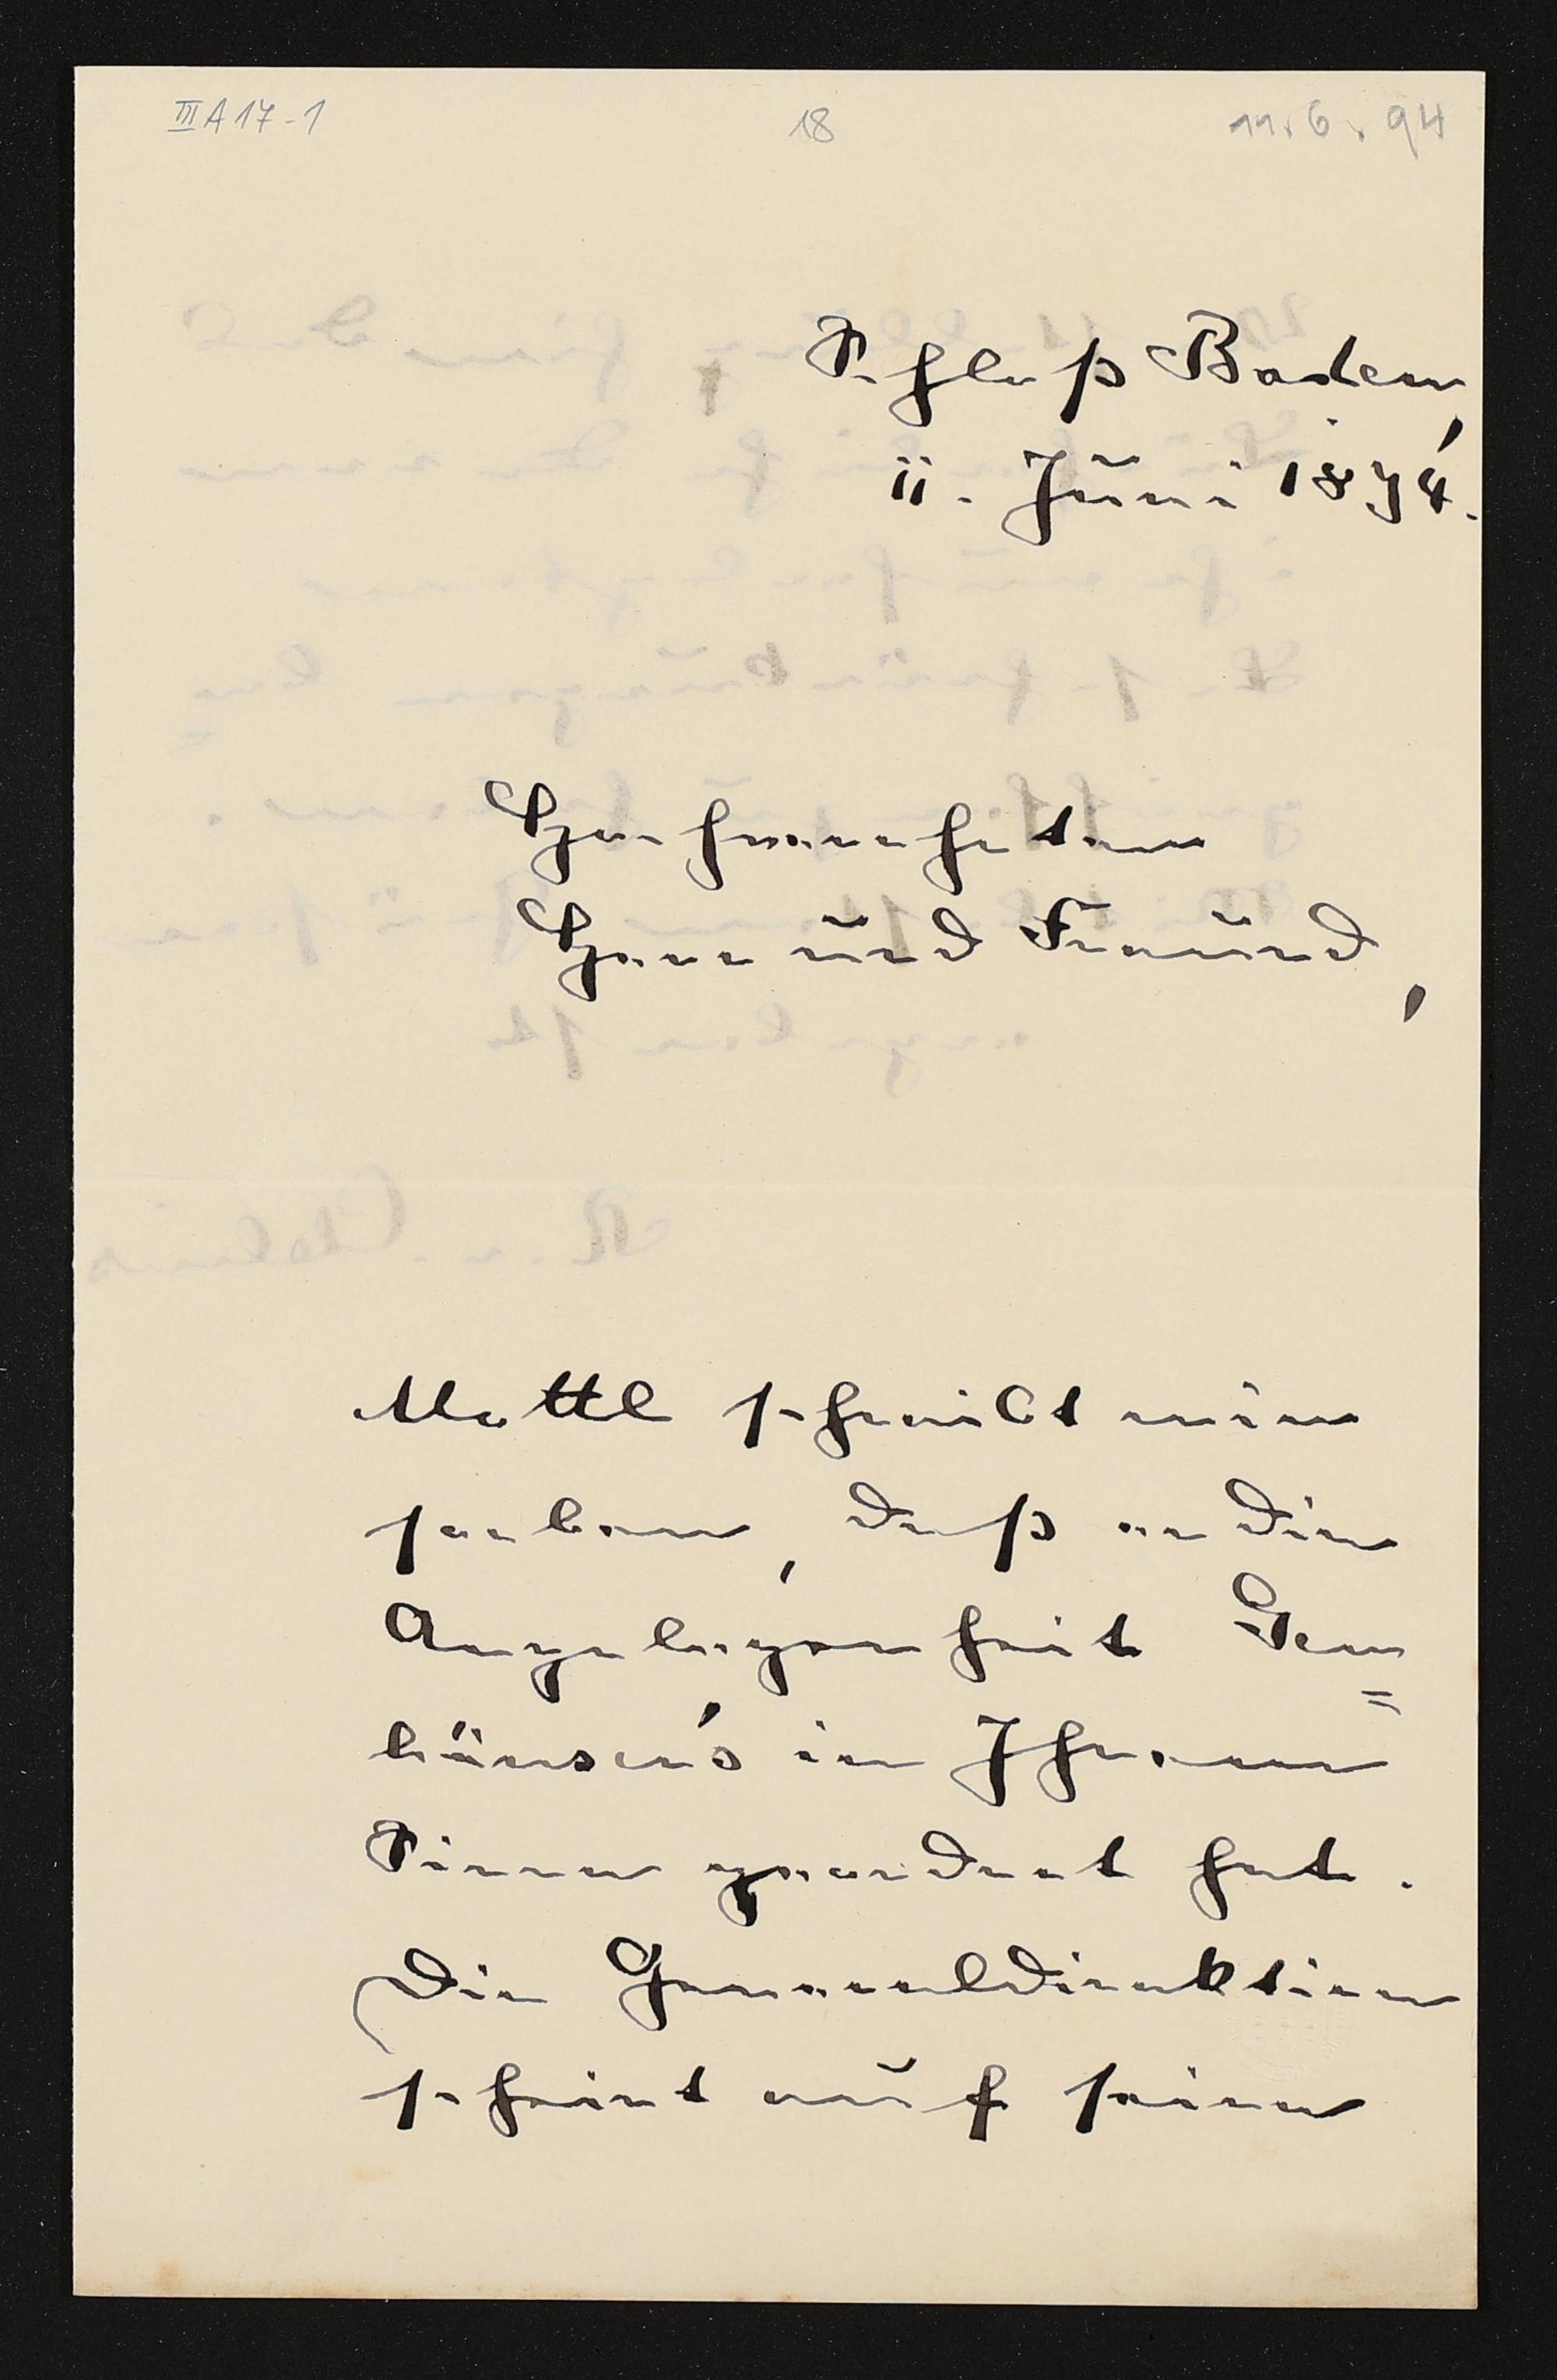 III A 17-1
18
11.6.94
Schloß Baden,
11. Juni 1894.
Hochverehrter
Herr und Freund,
Mottl schreibt mir
soeben, daß er die
Angelegenheit Gem=
bünser's in Ihrem
Sinne geordnet hat.
Die Generaldirektion
scheint auf seine